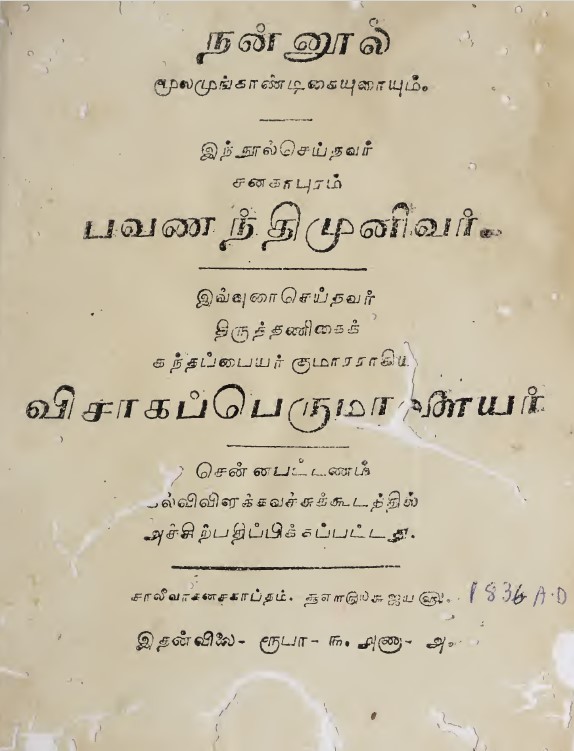 நன்னூல்
மூலமுங்காண்டிகையுரையும்.
இந்நூல்செய்தவர்
சனகாபுரம்
பவணந்திமுனிவர்.
இவ்வுரைசெய்தவர்
திருத்தணிகைக்
கந்தப்பையர் குமாரராகிய
விசாகப்பெருமாளையர்
சென்னபட்டணம்
கல்விவிளக்கவச்சுக்கூடத்தில்
அச்சிற்பதிப்பிக்கப்பட்டது.
சாலிவாகனசகாப்தம். 1836 A.D
இதன்விலை- ரூபா- ௩. அணா- அ.